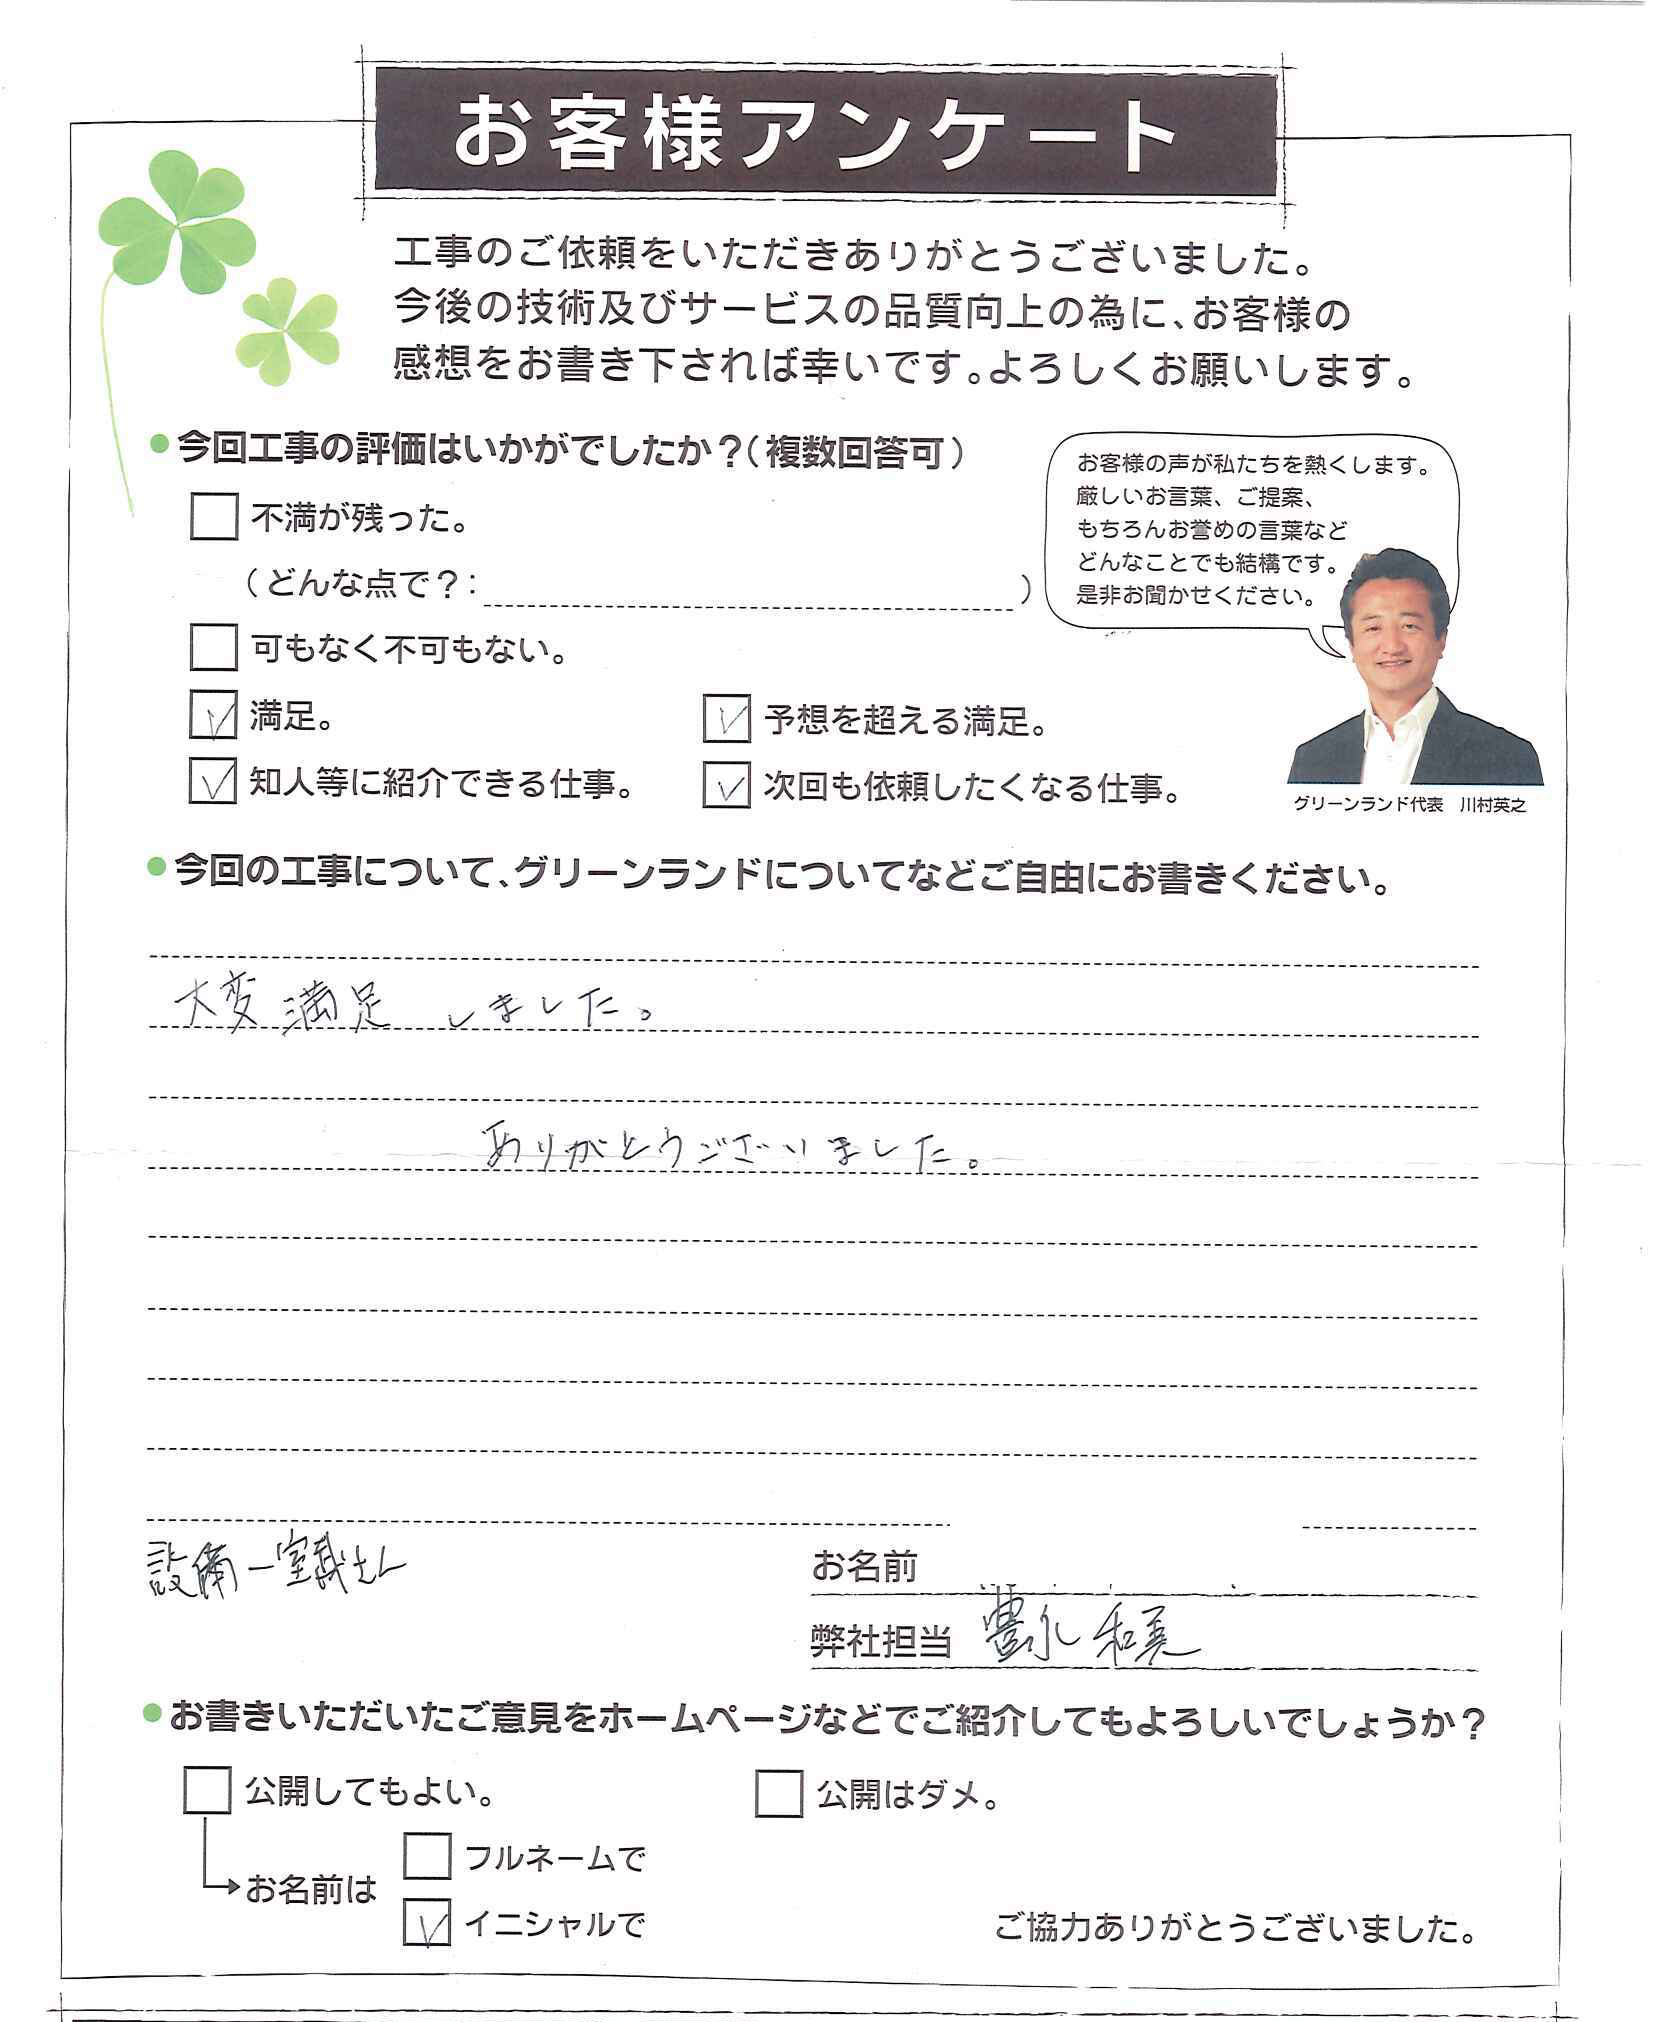 お客様アンケート
工事のご依頼をいただきありがとうございました。
今後の技術及びサービスの品質向上の為に、お客様の
感想をお書き下されば幸いです。よろしくお願いします。
今回工事の評価はいかがでしたか?(複数回答可)
お客様の声が私たちを熱くします。
厳しいお言葉、ご提案、
もちろんお誉めの言葉など
どんなことでも結構です。
是非お聞かせください。
不満が残った。
(どんな点で?: )
可もなく不可もない。
満足。 予想を超える満足。
知人等に紹介できる仕事。 次回も依頼したくなる仕事。
グリーンランド代表 川村英之
今回の工事について、グリーンランドについてなどご自由にお書きください。
大変満足 しました。
ありがとうございました。
設備一室 さん
お名前
弊社担当 豊永 和美
お書きいただいたご意見をホームページなどでご紹介してもよろしいでしょうか?
公開してもよい。 公開はダメ。
フルネームで
お名前は
イニシャルで
ご協力ありがとうございました。